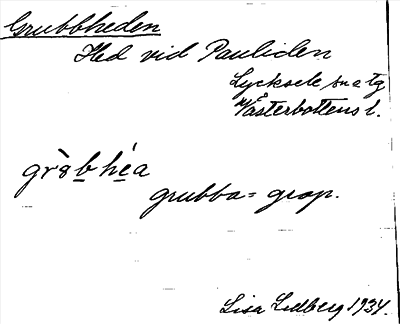 Grubbheden
Hed vid Pauliden
Lycksele sn o tg
Västerbottens l.
gr`8b héa
grubba = grop.
Lisa Lidberg 1934.